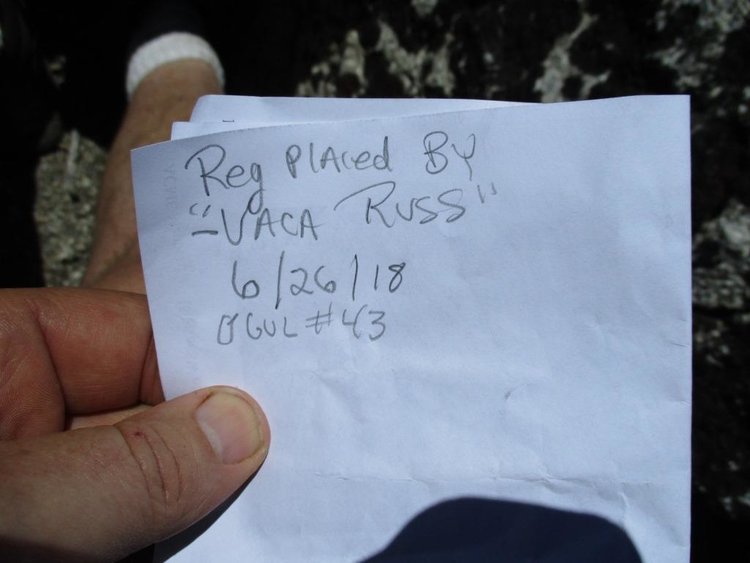 Reg PlAced By
"VACA RUSS"
6/26/18
OGUL #43